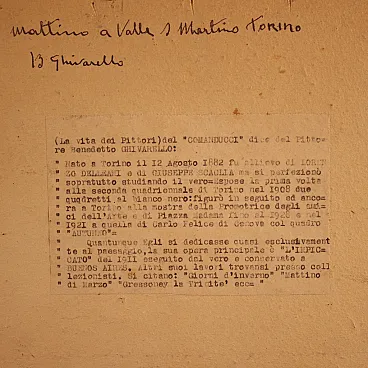 Mattino a Valle S Martino Torino
B Ghivarello
(La vita dei Pittori)del "COMANDUCCI" dice del Pitto=
re Benedetto GHIVARELLO:
" Nato a Torino il 12 Agosto 1882 fu allievo di LOREN
" ZO DELLEANI e di GIUSEPPE SCAGLIA ma si perfezionò
" sopratutto studiando il vero=Espose la prima volta
" alla seconda quadriennale di Torino nel 1908 due
" quadretti al bianco nero:figurò in seguito ed anco=
" ra a Torino alla mostra della Promotrice degli Ami=
" ci dell'Arte e di Piazza Madama fino al 1928 e nel
" 1921 a quella di Carlo Felice di Genova col quadro
" "AUTUNNO"=
" Quantunque Egli si dedicasse quasi esclusivament
" te al paesaggio,la sua opera principale è "L'IMPIC=
" CATO" del 1911 eseguito dal vero e conservato a
" BUENOS AIRES. Altri suoi lavori trovansi presso coll
" lezionisti. Si citano: "Giorni d'inverno" "Mattino
" di Marzo" "Gressoney la Trinite' ecc= "